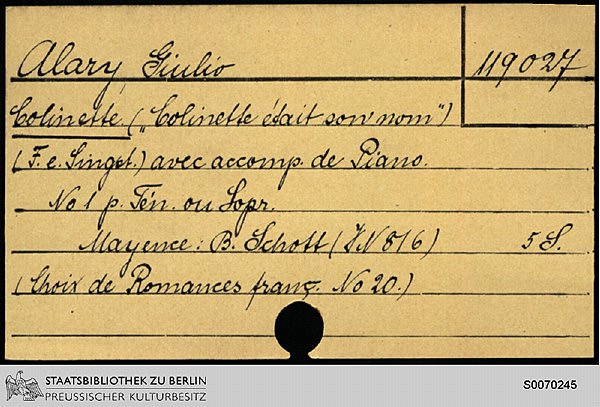 Alary, Giulio
119027
Colinette. („Colinette était son nom")
(F. e. Singst.) avec accomp. de Piano.
No 1 p. Tén. ou Sopr.
Mayence: B. Schott (VN 816) 5 S.
(Choix de Romances franç. No 20.)
STAATSBIBLIOTHEK ZU BERLIN
PREUSSISCHER KULTURBESITZ
S0070245